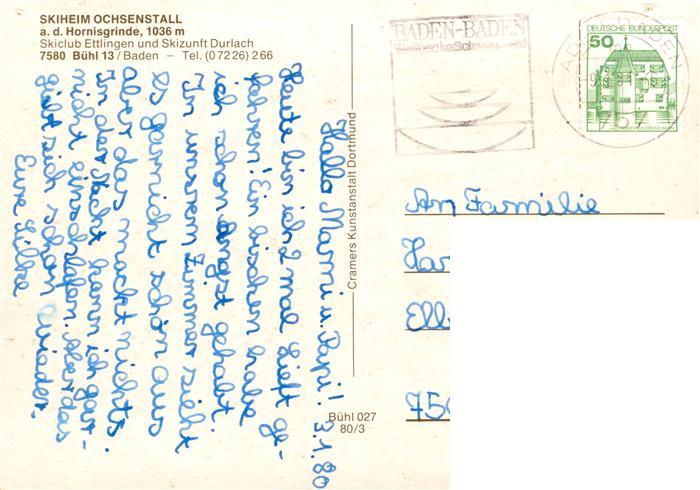 SKIHEIM OCHSENSTALL
a. d. Hornisgrinde, 1036 m
Skiclub Ettlingen und Skizunft Durlach
7580 Bühl 13 / Baden – Tel. (0 72 26) 2 66
BADEN-BADEN
DEUTSCHE BUNDESPOST
50
3.1.80
Hallo Mammi u. Papi!
Heute bin ich 2 mal Lieft ge-
fahren! Ein bischen habe
ich schon Angst gehabt.
In unserem Zimmer sieht
es garnicht schön aus
Aber das macht nichts.
In der Nacht kann ich gar-
nicht einschlafen. Aber das
gibt sich schon wieder.
Eure Silke
Cramers Kunstanstalt Dortmund
Bühl 027
80/3
An Familie
Har
Ell
750